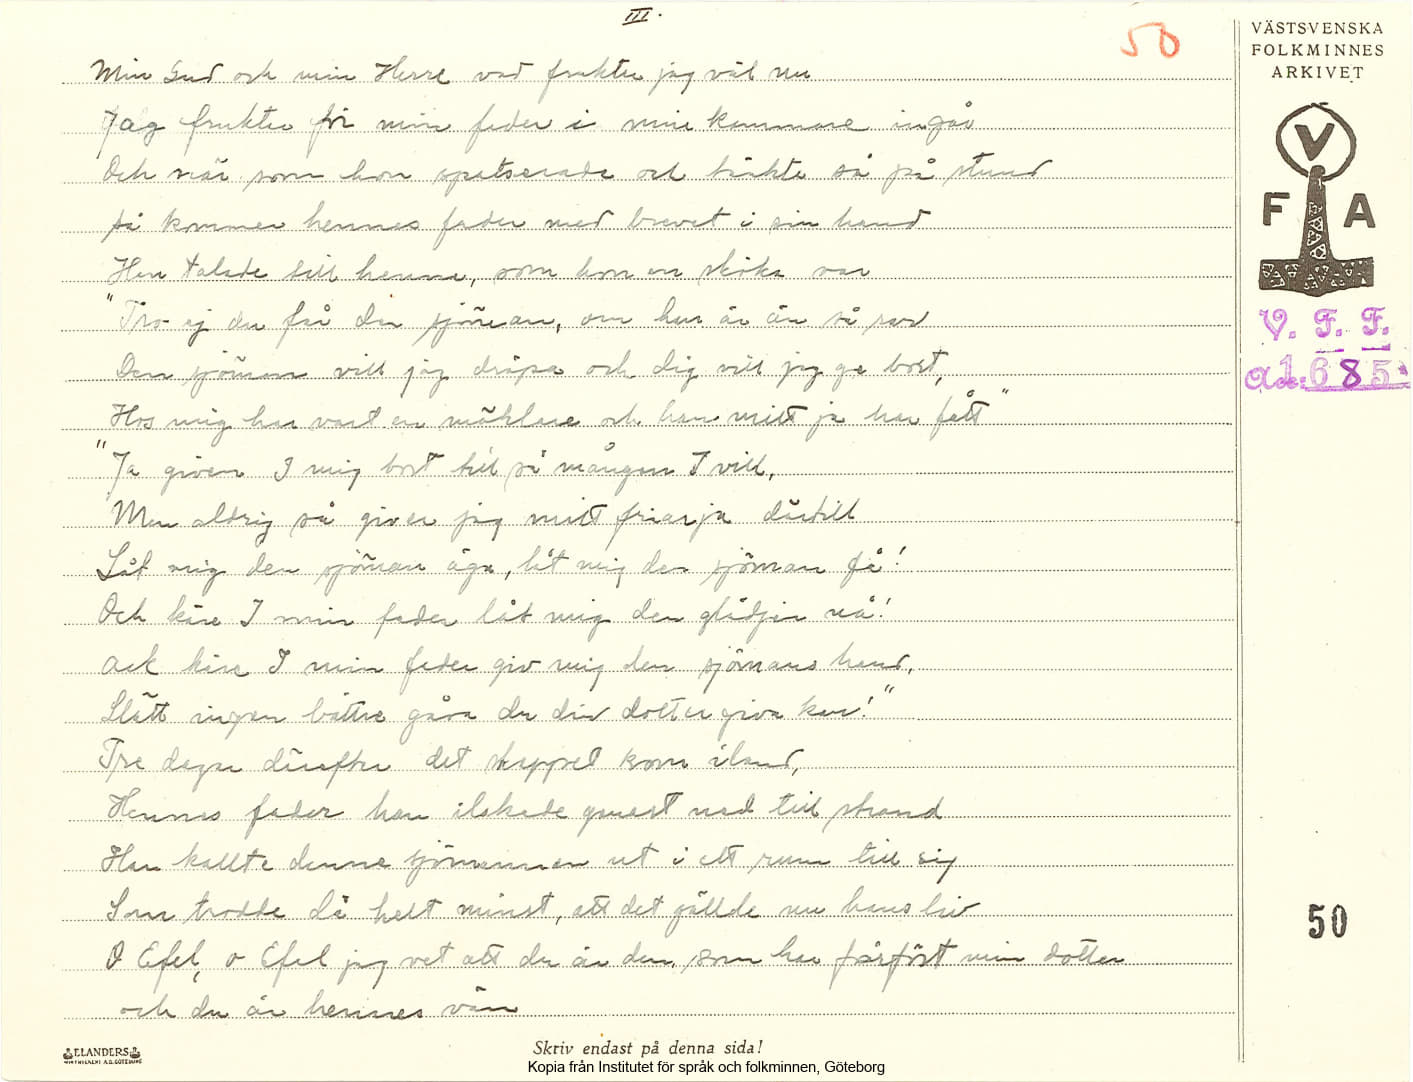 III.
50
VÄSTSVENSKA
FOLKMINNES
ARKIVET
V
F A
V. F. F.
Acc: 1685
Min Gud och min Herre vad fruktar jag väl nu
Jag fruktar för min fader i min kammare ingår
Och när som hon spatserade och tänkte så på stund
så kommer hennes fader med brevet i sin hand
Han talade till henne, som hon en sköka var
"Tro ej du får den sjöman, om han är än så rar
Den sjöman vill jag dräpa och dig vill jag ge bort,
Hos mig har varit en mäklare och han mitt ja har fått"
"Ja given I mig bort till så mången I vill,
Men aldrig så giver jag mitt friarja därtill
Låt mig den sjöman äga, låt mig den sjöman få!
Och käre I min fader låt mig den glädjen nå!
Ack käre I min fader giv mig den sjömans hand,
Slätt ingen bättre gåva du din dotter giva kan!"
Tre dagar därefter det skeppet kom iland,
Hennes fader han ilskade genast ned till strand
Han kallte denne sjömannen ut i ett rum till sig
Som trodde då helt minst, att det gällde nu hans liv
O Efel, o Efel jag vet att du är den, som har förfört min dotter
och du är hennes vän
50
ELANDERS
Skriv endast på denna sida!
Kopia från Institutet för språk och folkminnen, Göteborg